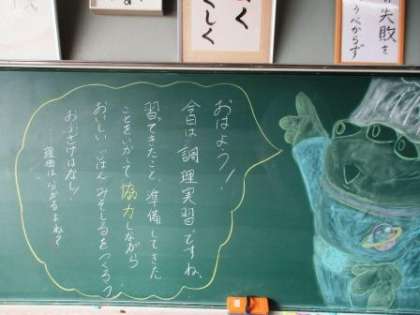 くしく
失敗を
べからず
おはよう!
今日は調理実習ですね。
習ってきたこと、準備してきた
ことをいかして協力しながら
おいしいごはんみそしるをつくろう
おふざけはなし!
理由は分かるよね?